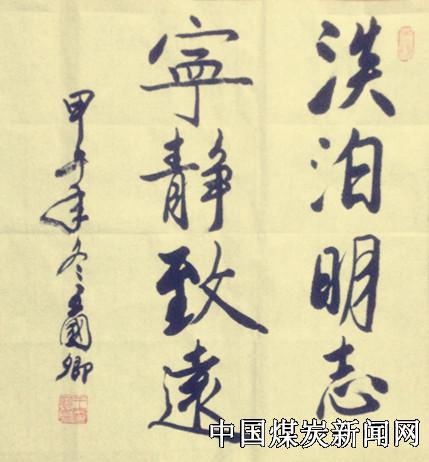 淡泊明志
寧靜致遠
甲午年冬王國卿
中国煤炭新闻网